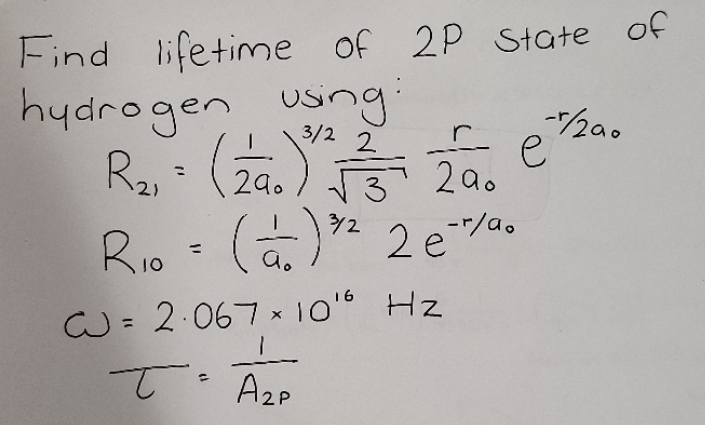 Find lifetime of 2P state of
hydrogen using:
R₂₁ = (1/2a₀)^3/2 2/√3 r/2a₀ e^-r/2a₀
R₁₀ = (1/a₀)^3/2 2e^-r/a₀
ω = 2.067 × 10¹⁶ Hz
τ = 1/A₂P